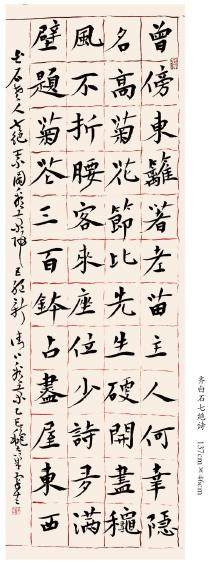 曾傍東籬著老苗主人何幸隱
名高菊花節比先生硬開盡穐
風不折腰客來座位少詩多滿
壁題菊花三百鉢占盡屋東西
石老人七绝
齐白石七绝诗 137cm×46cm